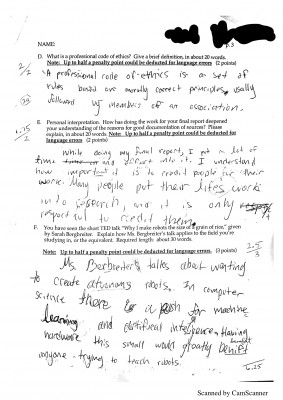 NAME: p.3
D. What is a professional code of ethics? Give a brief definition, in about 20 words.
Note: Up to half a penalty point could be deducted for language errors (2 points)
2/2
A professional code of ethics is a set of
rules based are morally correct principles, usually
followed by members of an association.
E. Personal interpretation. How has doing the work for your final report deepened
your understanding of the reasons for good documentation of sources? Please
explain, in about 20 words. Note: Up to half a penalty point could be deducted for
language errors (2 points)
1.75/2
While doing my final report, I put in lot of
time and effort into it. I understand
how important it is to credit people for their
work. Many people put their life's work
into research, and it is only
respectful to credit them.
F. You have seen the short TED talk "Why I make robots the size of a grain of rice," given
by Sarah Bergbreiter. Explain how Ms. Bregbreiter's talk applies to the field you're
studying in, or the equivalent. Required length: about 30 words.
2.5/3
Note: Up to half a penalty point could be deducted for language errors. (3 points)
Ms. Berbreiter's talks about wanting
to create atunoms robots. In computer
science there is a push for machine
learning and artificial intelligence. Having
hardware this small would greatly benifit
anyone trying to teach robots.
6.25
Scanned by CamScanner